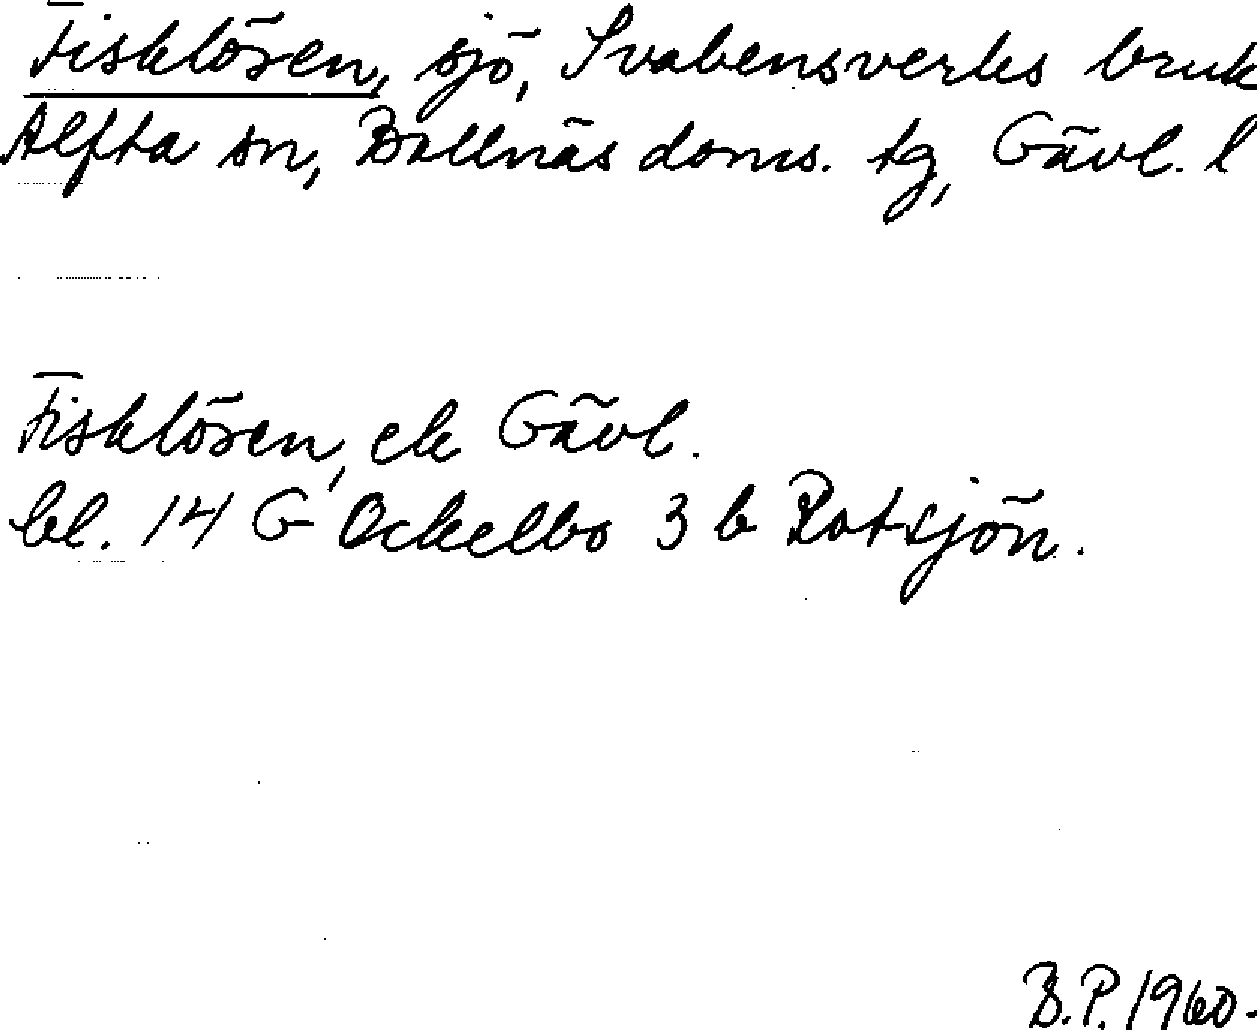 Fisklösen, sjö, Svabensverks bruk
Alfta sn, Bollnäs doms. tg, Gävl. l
Fisklösen, ek Gävl.
bl. 14 G Ockelbo 3 b Rotsjön.
B.P. 1960.